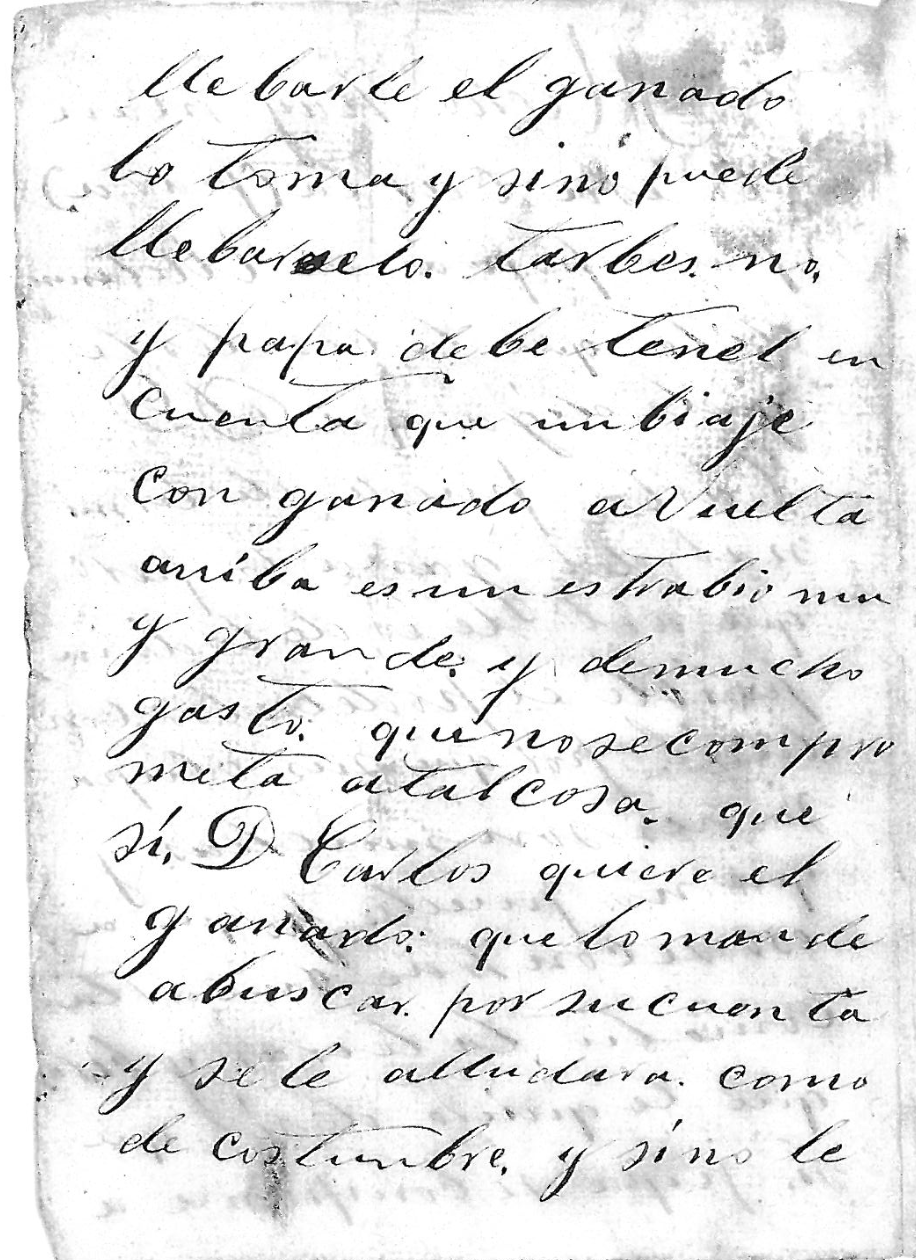 llebarle el ganado
lo toma y sinó puede
llebarselo. tarbes. no,
y papa debe tenel en
cuenta que un biaje
con ganado a Vuelta
ariba es un estrabio mu
y grande. y demucho
gasto. quenosecompro
meta atalcosa. que
sí, D Carlos quiere el
ganado: quelomande
abuscar. por sucuenta
y sele alludara. como
de costumbre, y sino le